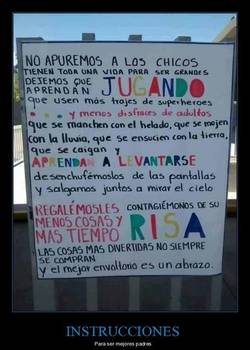 NO APUREMOS A LOS CHICOS
TIENEN TODA UNA VIDA PARA SER GRANDES
DEJEMOS QUE
APRENDAN JUGANDO
que usen más trajes de superhéroes
y menos disfraces de adultos
que se manchen con el helado, que se mojen
con la lluvia, que se ensucien con la tierra,
que se caigan y
APRENDAN A LEVANTARSE
desenchufémoslos de las pantallas
y salgamos juntos a mirar el cielo
REGALÉMOSLES
MENOS COSAS Y
MAS TIEMPO
CONTAGIÉMONOS DE SU
RISA
LAS COSAS MAS DIVERTIDAS NO SIEMPRE
SE COMPRAN
y el mejor envoltorio es un abrazo.
INSTRUCCIONES
Para ser mejores padres